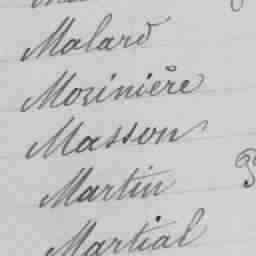 Malard
Morinière
Masson
Martin
Martial